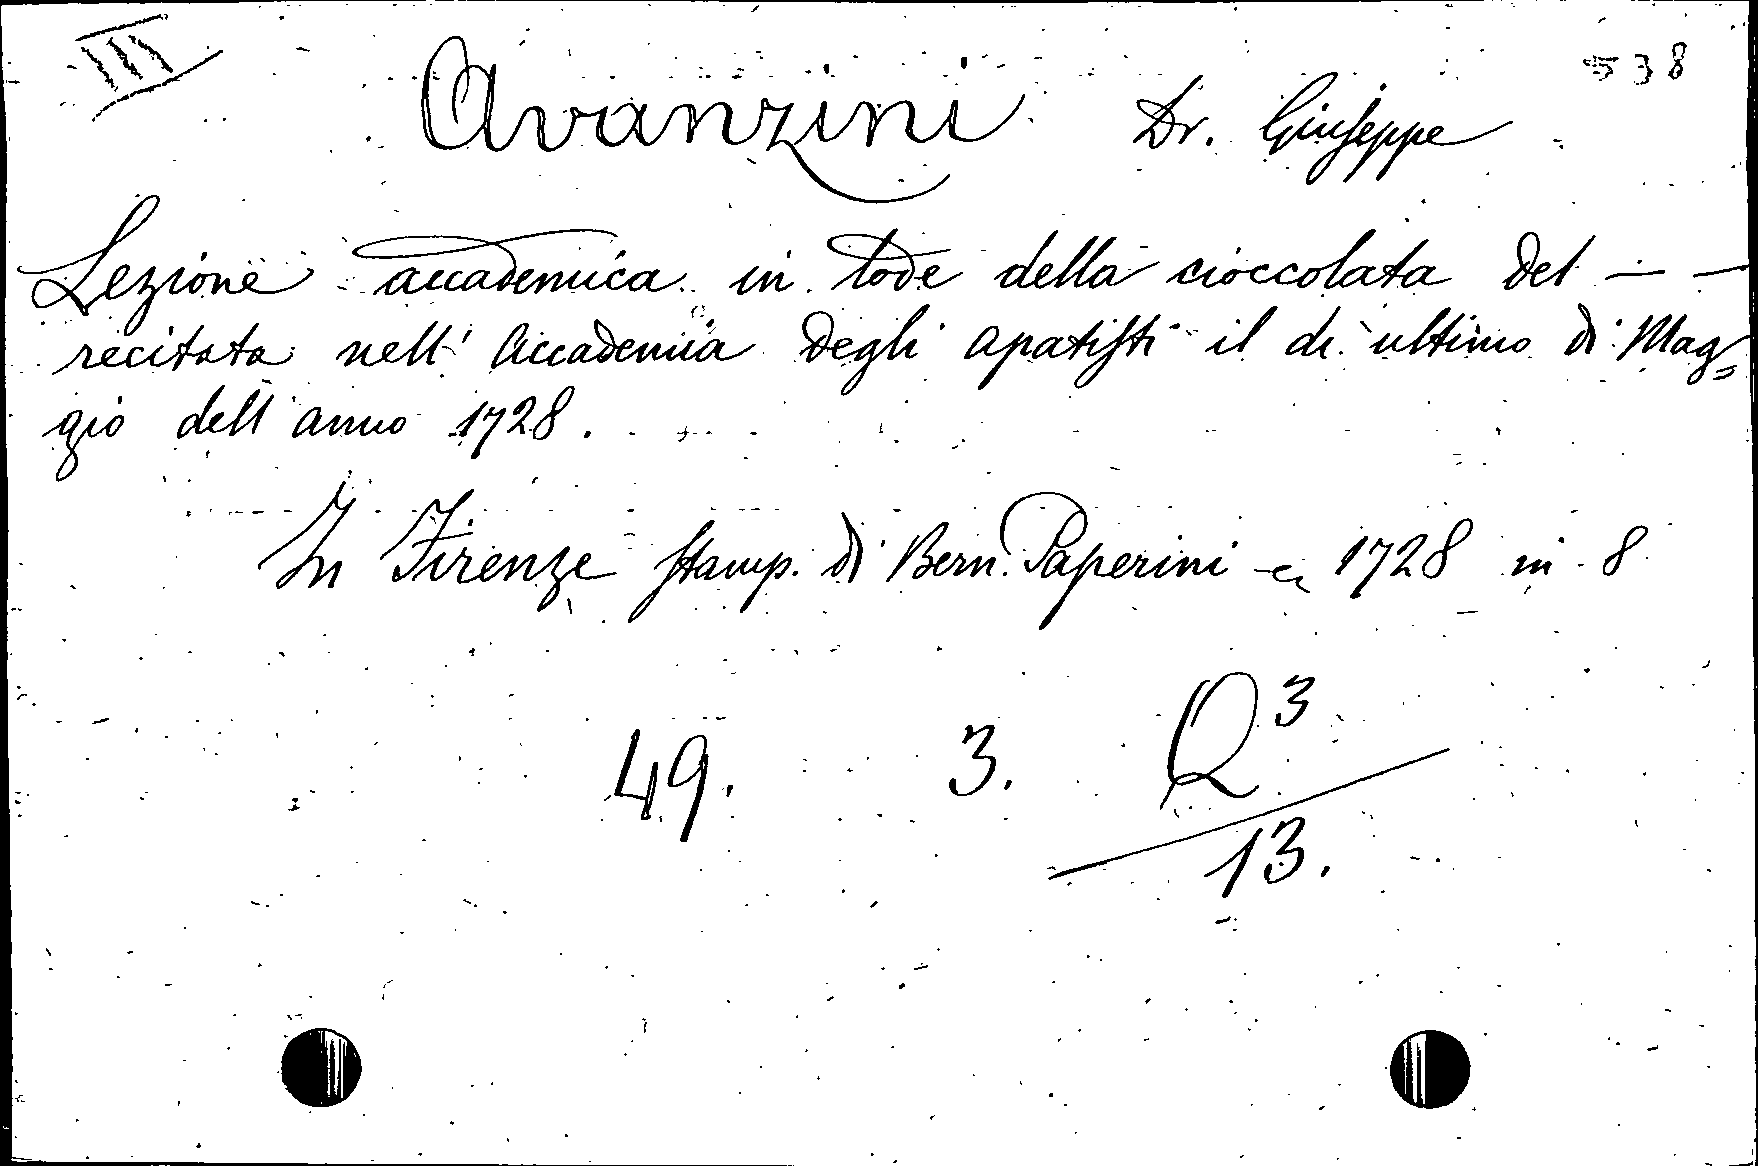 III
538
Avanzini Dr. Giuseppe
Lezione accademica in lode della cioccolata del — —
recitata nell' Accademia degli apatisti il di ultimo di Mag=
gio dell' anno 1728.
In Firenze stamp. di Bern. Paperini 1728 in 8
49. 3. Q3
13.